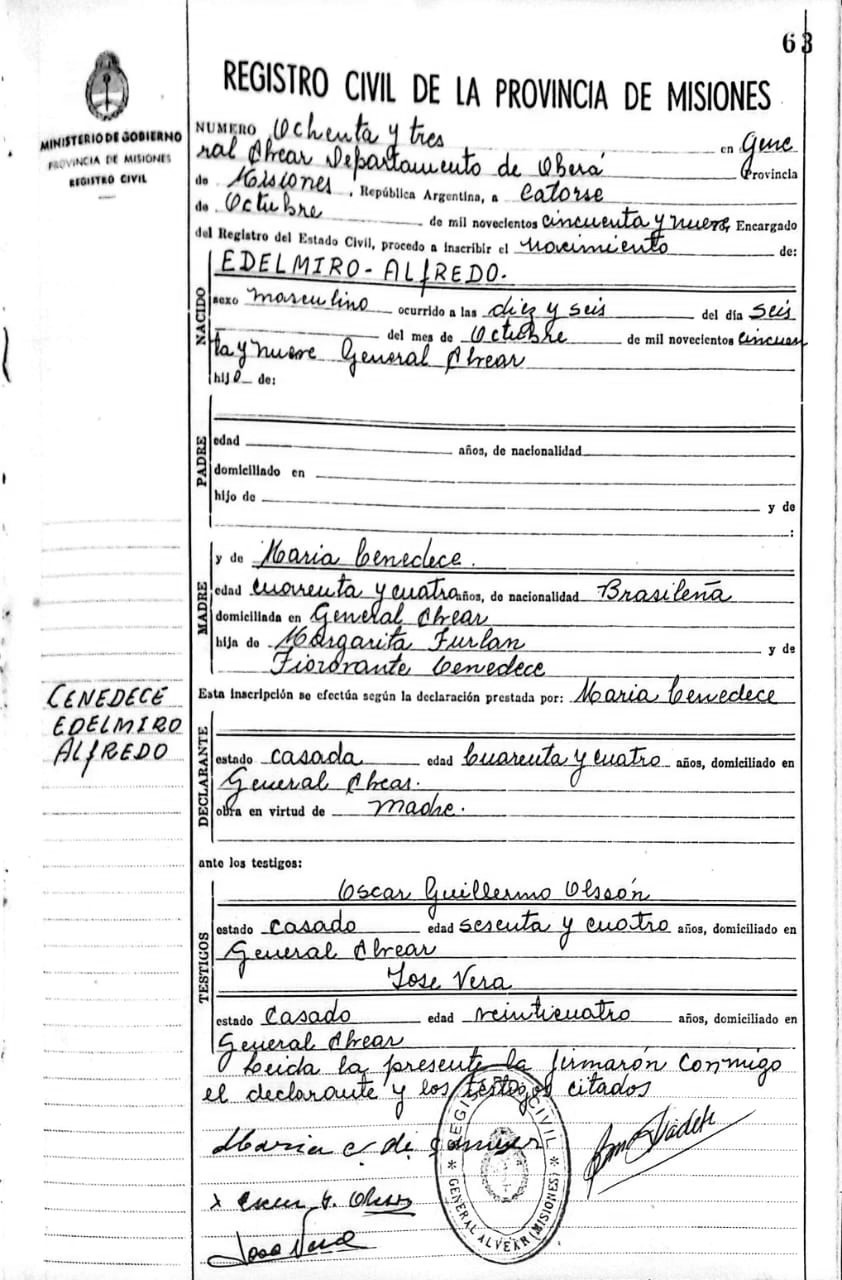 63
MINISTERIO DE GOBIERNO
PROVINCIA DE MISIONES
REGISTRO CIVIL
REGISTRO CIVIL DE LA PROVINCIA DE MISIONES
NUMERO Ochenta y tres en Gene
ral Alvear Departamento de Oberá Provincia
de Misiones, República Argentina, a catorse
de Octubre de mil novecientos cincuenta y nueve Encargado
del Registro del Estado Civil, procedo a inscribir el nacimiento de:
NACIDO
EDELMIRO - ALfREDO.
sexo masculino ocurrido a las diez y seis del día seis
del mes de Octubre de mil novecientos cincuen
ta y nueve General Alvear
hijo de:
PADRE
edad años, de nacionalidad
domiciliado en
hijo de y de
:
MADRE
y de Maria Cenedece.
edad cuarenta y cuatro años, de nacionalidad Brasileña
domiciliada en General Alvear
hija de Margarita Furlan y de
Fioravante Cenedece
CENEDECE
EDELMIRO
ALfREDO
Esta inscripción se efectúa según la declaración prestada por: Maria Cenedece
DECLARANTE
estado casada edad Cuarenta y cuatro años, domiciliado en
General Alvear.
obra en virtud de madre.
ante los testigos:
TESTIGOS
Oscar Guillermo Olssón
estado casado edad sesenta y cuatro años, domiciliado en
General Alvear
Jose Vera
estado casado edad veinticuatro años, domiciliado en
General Alvear
Leida la presente la firmarón conmigo
el declarante y los testigos citados
Maria c. de
Jose Vera
REGISTRO CIVIL
GENERAL ALVEAR (MISIONES)